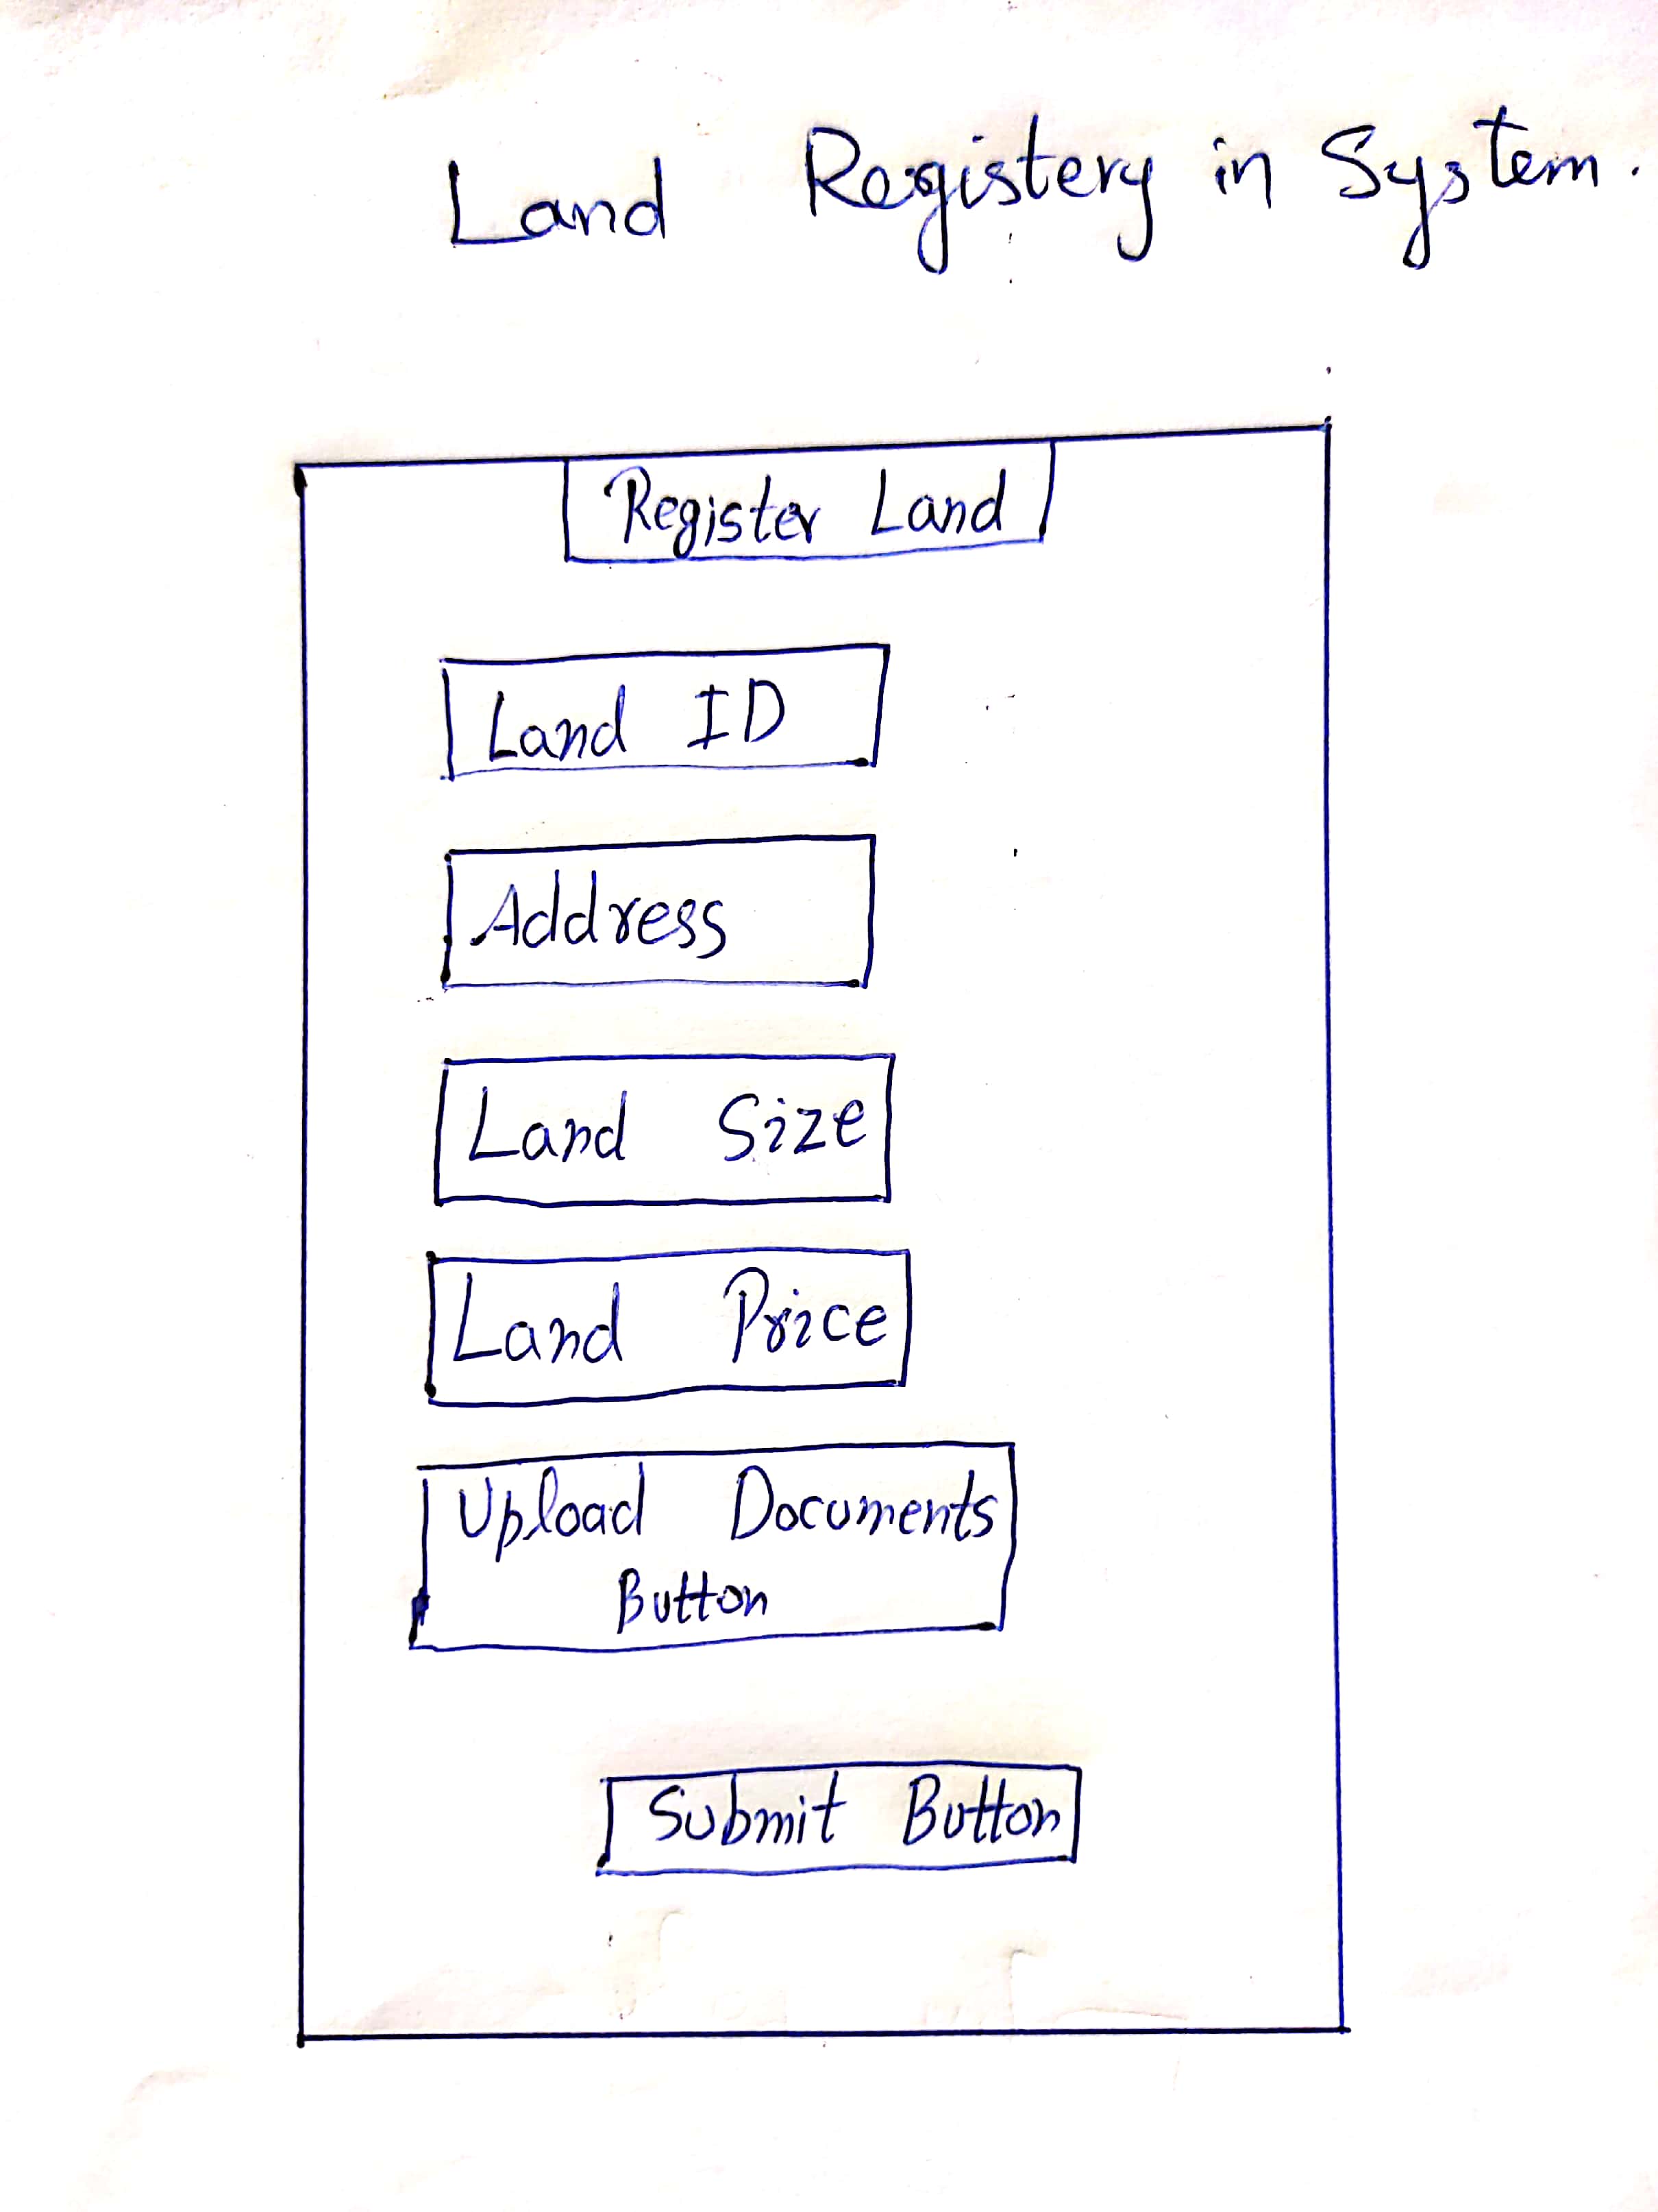 Land Registery in System.
Register Land
Land ID
Address
Land Size
Land Price
Upload Documents
Button
Submit Button